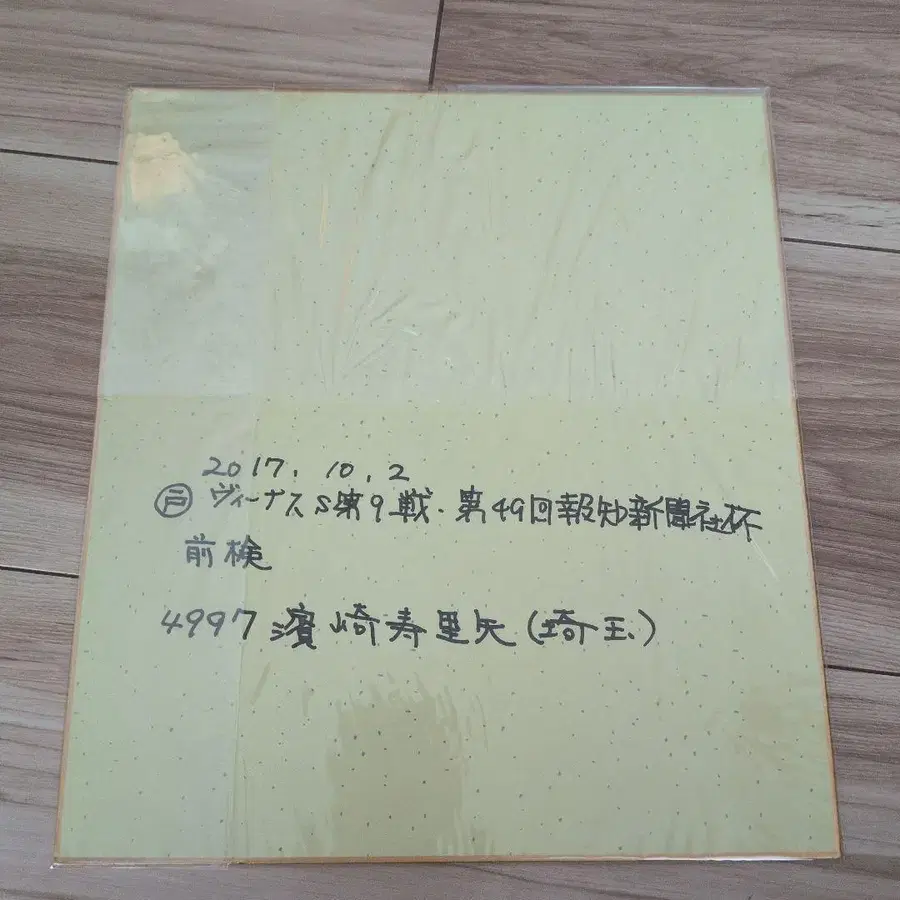 2017. 10. 2
㋣ ヴィーナスS第9戦・第49回報知新聞社杯
前検
4997 濱崎寿里矢(埼玉)